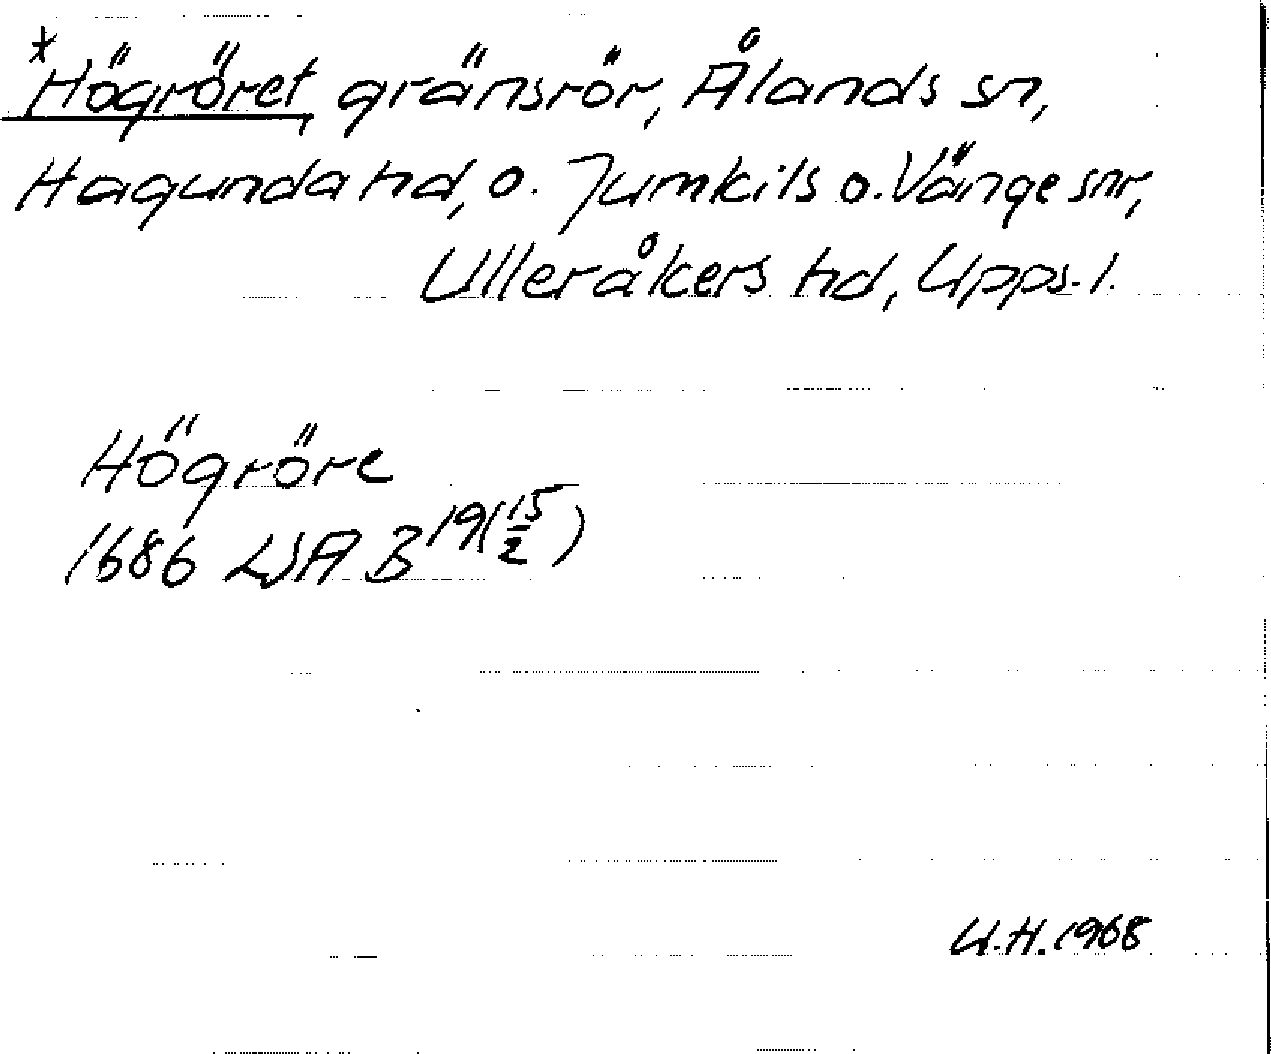 *Högröret, gränsrör, Ålands sn,
Hagunda hd, o. Jumkils o. Vänge snr,
Ulleråkers hd, Upps. l.
Högröre
1686 LSA B 19 (15/2)
U.H. 1968